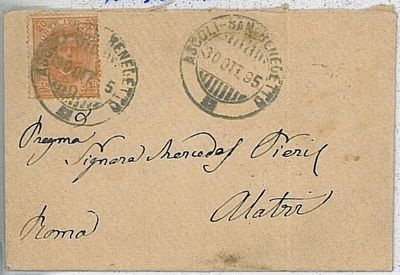 ASCOLI-SAN BENEDETTO
30 OTT. 95
ASCOLI-SAN BENEDETTO
30 OTT. 95
Pregma
Signora Mercedes Pieri
Alatri
Roma